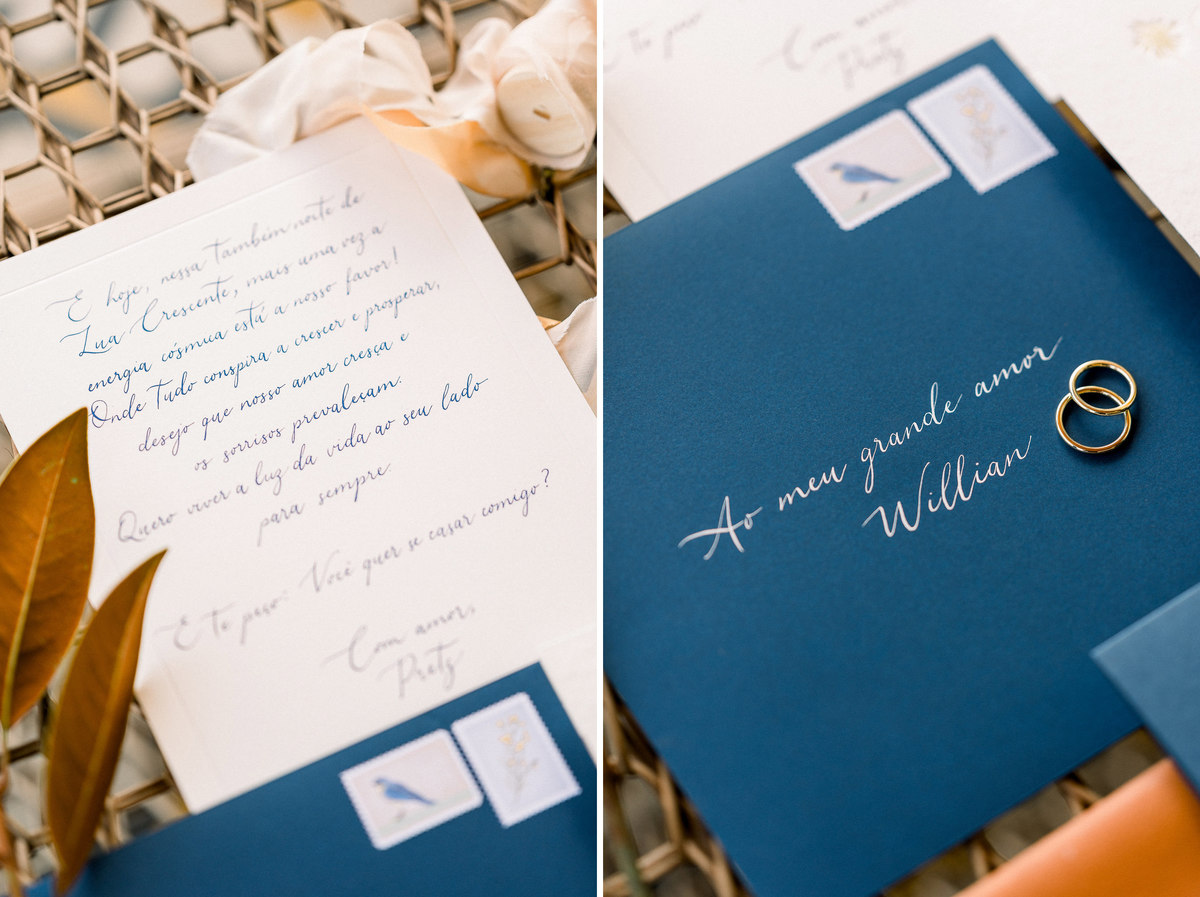 E hoje, nessa também noite de
Lua Crescente, mais uma vez a
energia cósmica está a nosso favor!
Onde tudo conspira a crescer e prosperar,
desejo que nosso amor cresça e
os sorrisos prevaleçam.
Quero viver a luz da vida ao seu lado
para sempre.
E te peço: Você quer se casar comigo?
Com amor,
Pretz
E te peço
Com amor
Pretz
Ao meu grande amor
Willian